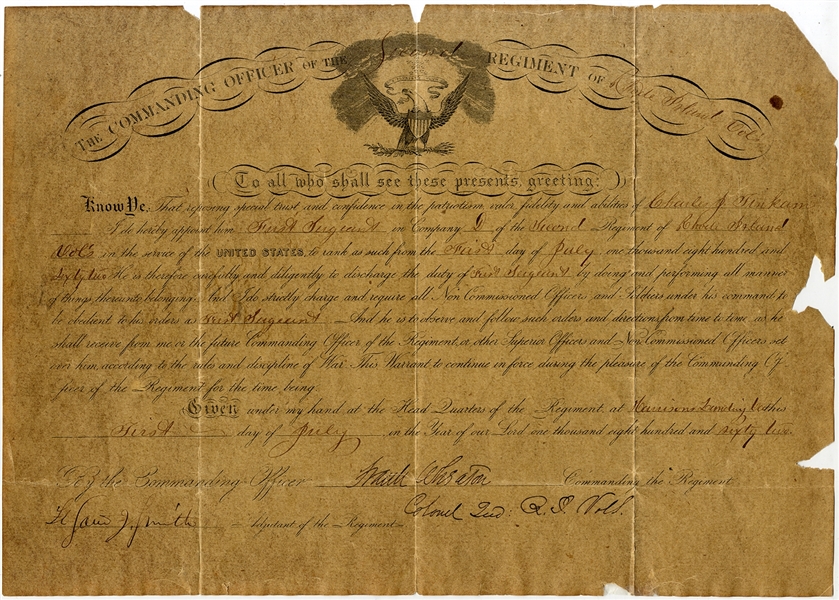 THE COMMANDING OFFICER OF THE Second REGIMENT OF Rhode Island Vols.
To all who shall see these presents, greeting:
Know Ye, That reposing special trust and confidence in the patriotism, valor, fidelity and abilities of Charles J Tinkam
I do hereby appoint him First Sergeant in Company D of the Second Regiment of Rhode Island
Vols in the service of the UNITED STATES, to rank as such from the First day of July one thousand eight hundred and
sixty two He is therefore carefully and diligently to discharge the duty of First Sergeant by doing and performing all manner
of things thereunto belonging. And I do strictly charge and require all Non Commissioned Officers and Soldiers under his command to
be obedient to his orders as First Sergeant And he is to observe and follow such orders and directions from time to time, as he
shall receive from me, or the future Commanding Officer of the Regiment, or other Superior Officers and Non Commissioned Officers set
over him, according to the rules and discipline of War. This Warrant to continue in force during the pleasure of the Commanding Of-
ficer of the Regiment for the time being.
Given under my hand at the Head Quarters of the Regiment at Harrisons Landing this
First day of July in the Year of our Lord one thousand eight hundred and sixty two.
By the Commanding Officer Commanding the Regiment
Smith Adjutant of the Regiment Colonel 2nd: R. I. Vols.